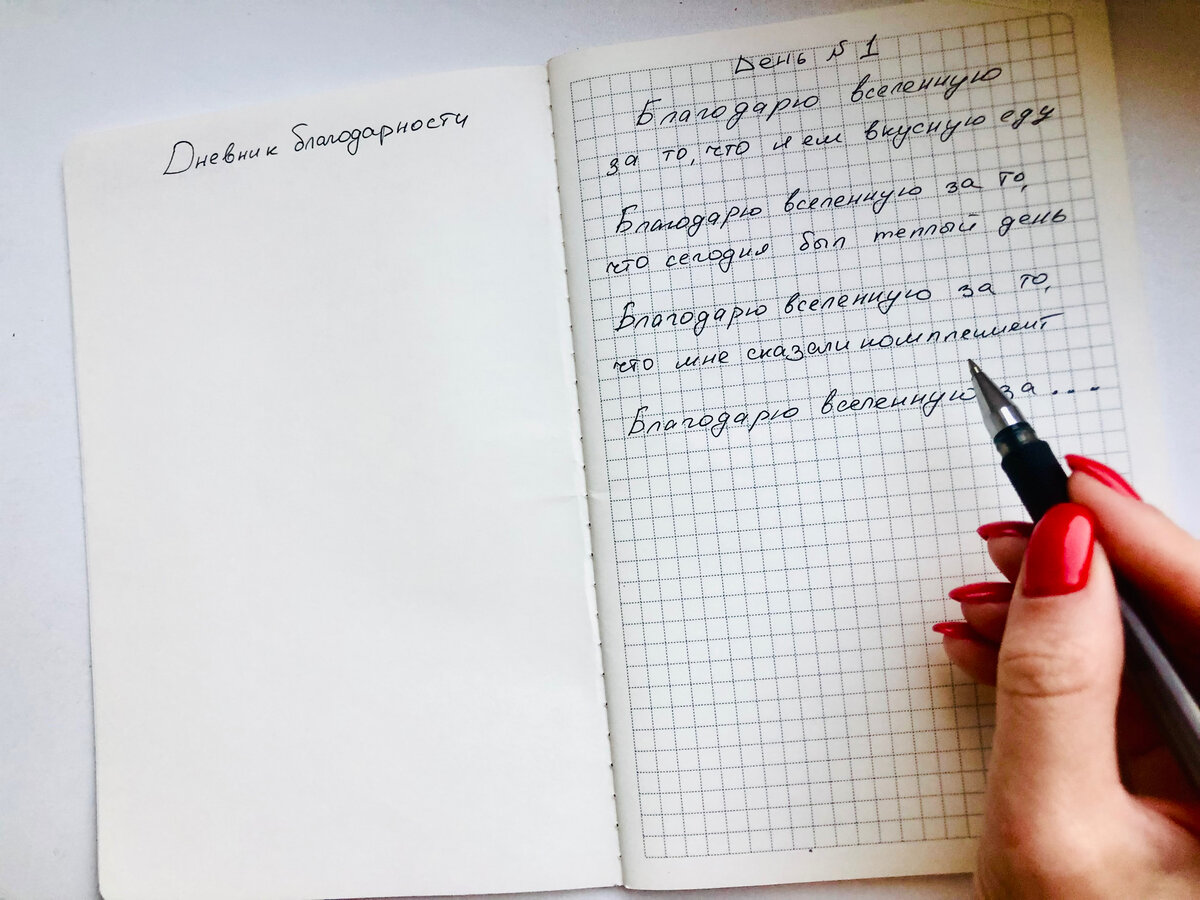 Дневник благодарности
День №1
Благодарю вселенную
за то, что я ем вкусную еду
Благодарю вселенную за то,
что сегодня был теплый день
Благодарю вселенную за то,
что мне сказали комплемент
Благодарю вселенную за ....